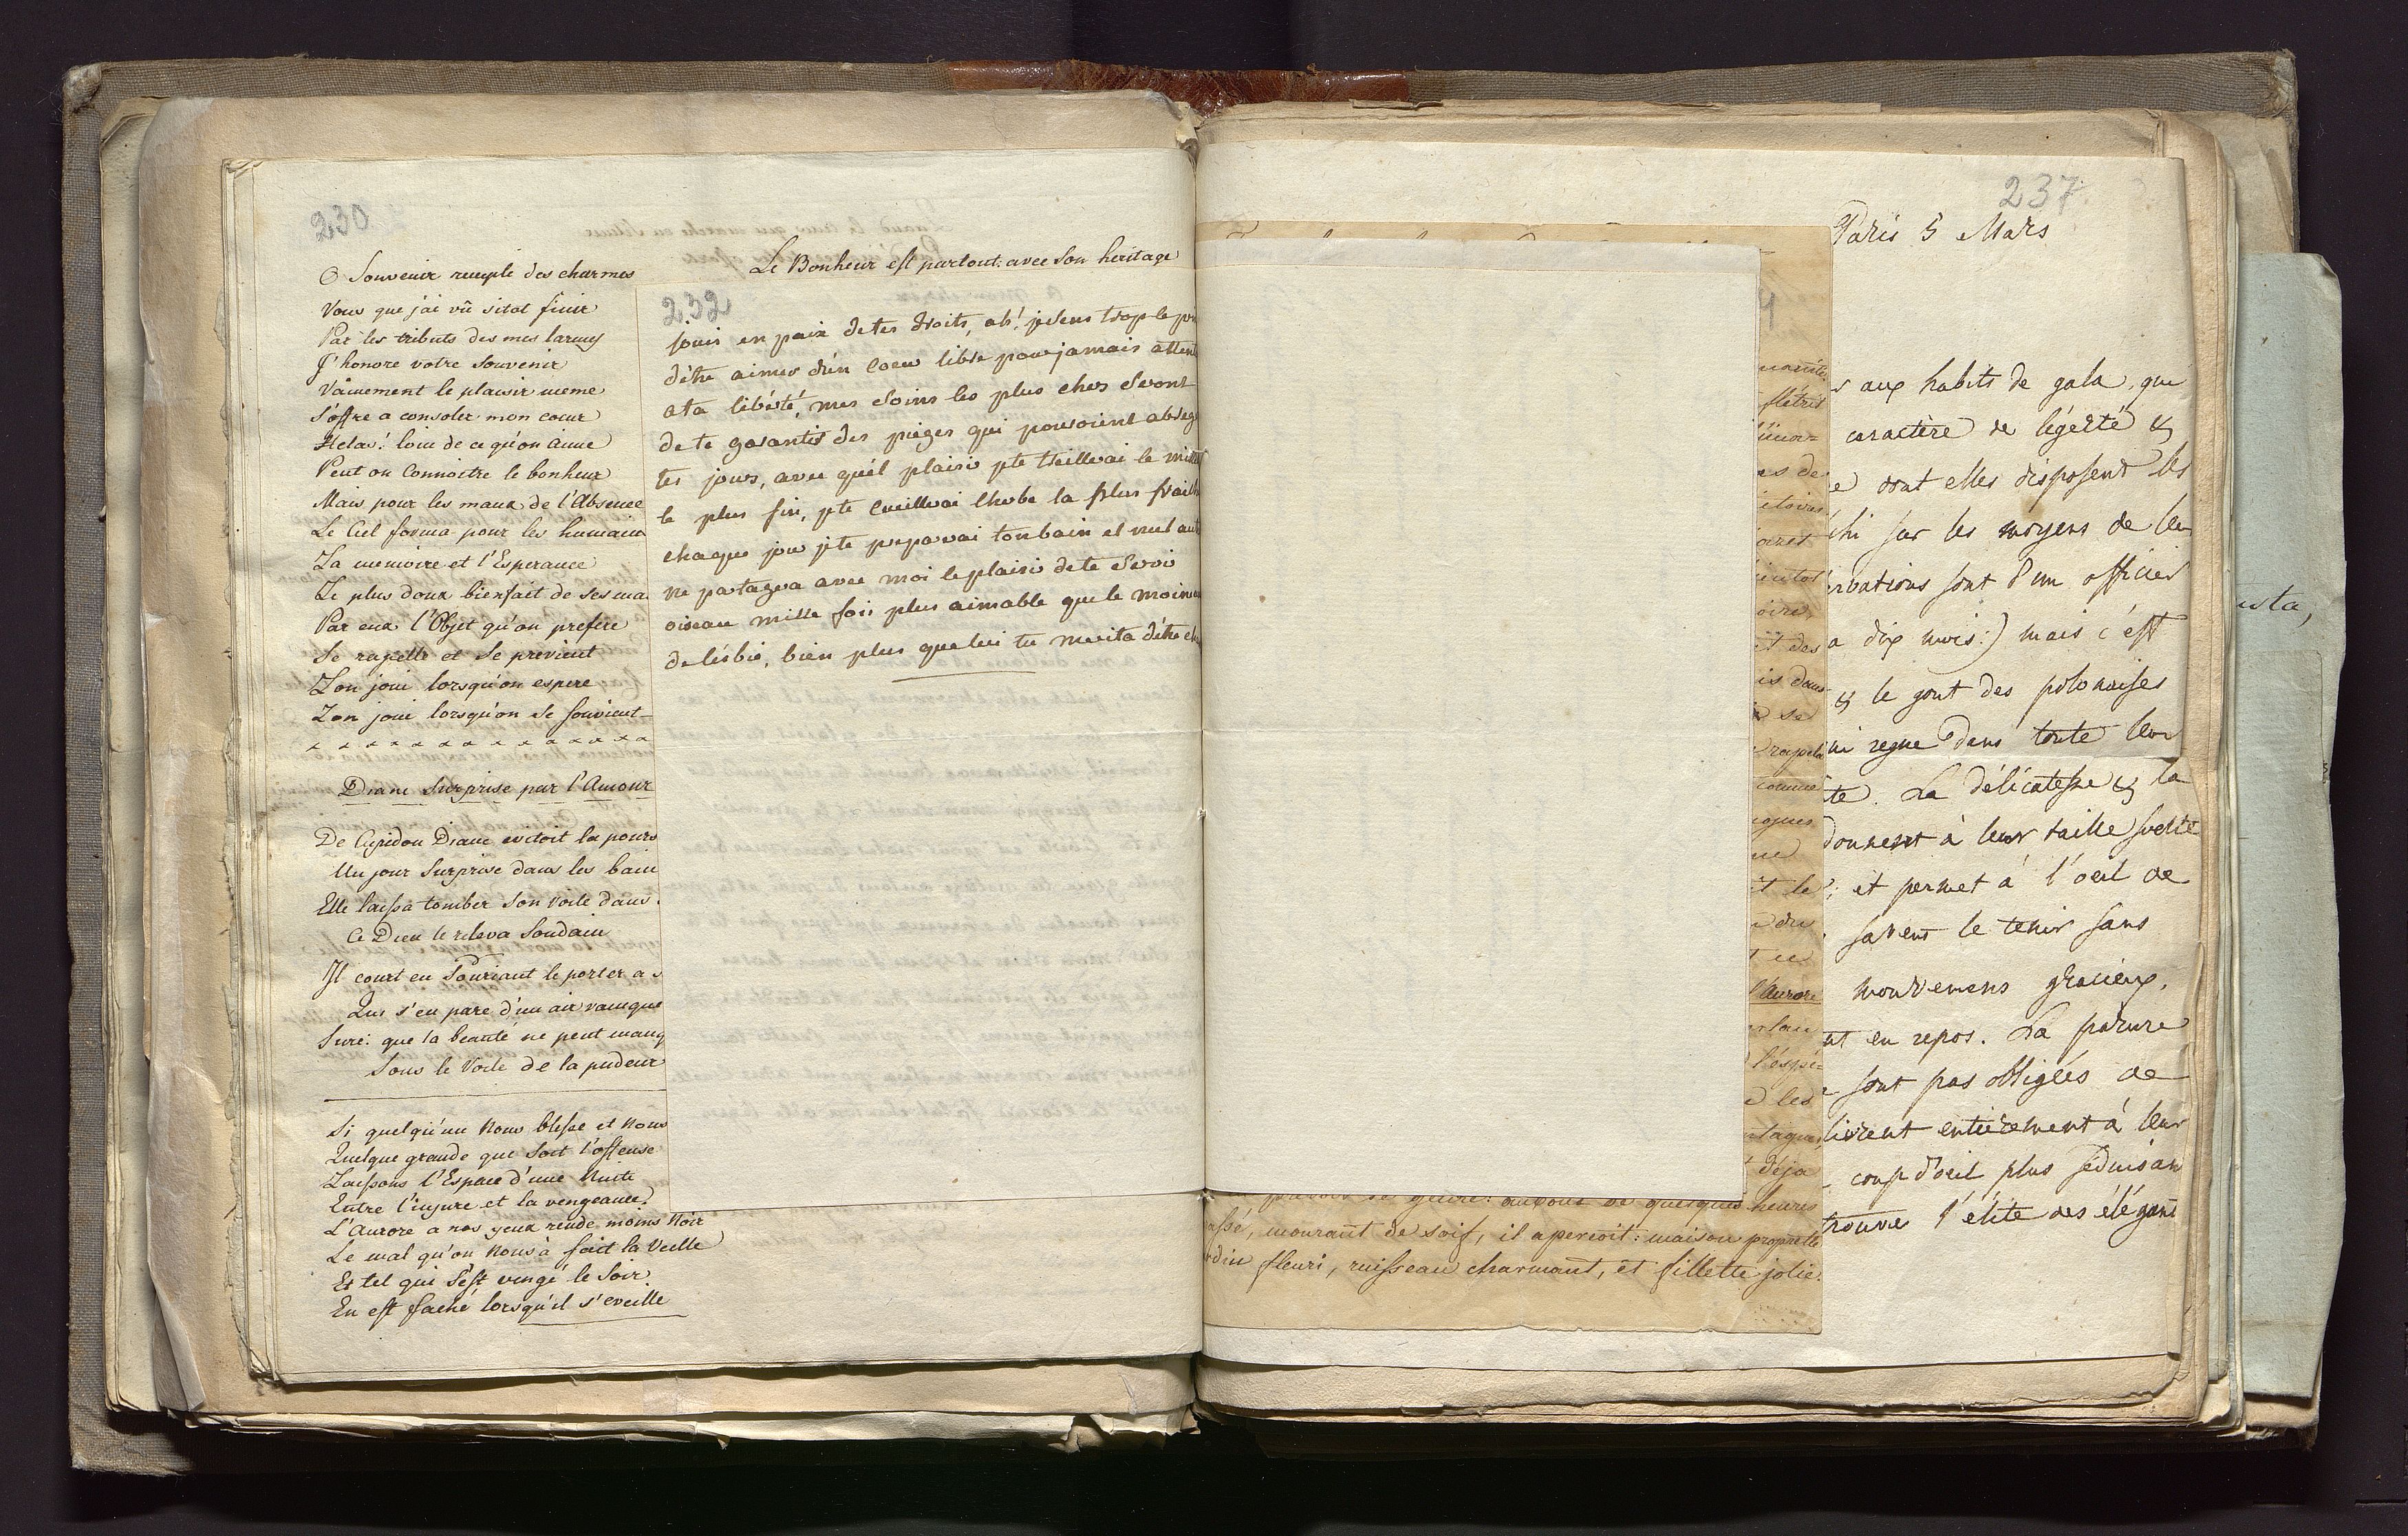 230
O Souvenir remplie des charmes
Vous que j'ai vû sitot finir
Par les tributs des mes larmes
J'honore votre Souvenir
Vainement le plaisir meme
S'offre a consoler mon coeur
Helas! loin de ce qu'on aime
Peut on Connoitre le bonheur
Mais pour les maux de l'Absence
Le Ciel forma pour les humains
La memoire et l'Esperance
Le plus doux bienfait de ses ma
Par eux l'Objet qu'on prefere
Se rapelle et se previent
L'on joui lorsqu'on espere
L'on joui lorsqu'on se souvient
x x x x x x x x x x x x x x
Diane Surprise par l'Amour
De Cupidon Diane evitoit la pours
Un jour Surprise dans les bain
Elle laissa tomber son voile dans
Ce Dieu le releva Soudain
Il court en Souriant le porter a s
Qui s'en pare d'un air vainque
Sure: que la beauté ne peut manq
Sous le Voile de la pudeur
Si quelqu'un Nous blesse et Nous
Quelque grande que soit l'offense
Laissons l'Espace d'une Nuite
Entre l'injure et la vengeance
L'Aurore a nos yeux rende moins Noir
Le mal qu'on Nous à fait la Veille
Et tel qui s'est vengé le Soir
En est faché lorsqu'il s'eveille
Le Bonheur est partout avec son heritage
232
jouis en paix de tes droits, ah! je sens trop le pri
d'être aimer d'un coeur libre pour jamais attent
a ta libérté, mes soins les plus chers seront
de te garantir des pieges qui pouroient abreg
tes jours, avec quél plaisir je te trillerai le mill
le plus fin, je te cueillerai lherbe la plus fraich
chaque jour je te preparai ton bain et nul aut
ne partagera avec moi le plaisir de te servir
oiseau mille fois plus aimable que le moineau
de lésbie, bien plus que lui tu merita d'étre
passé, mourant de soif, il aperçoit: maison proprette
rdin fleuri, ruisseau charmant, et fillette jolie.
237
Paris 5 Mars
s aux habits de gala, que
caractère de légérté &
e dont elles disposent les
chi sur les moyens de leu
ervations sont d'un officier
a dix mois:) mais c'est
& le gout des polonaises
ui regne dans toute leur
te. La délicatesse & la
donnent à leur taille svelte
; et permet à l'oeil de
savent le tenir sans
mouvemens gracieux,
nt en repos. La parure
e sont pas obligées de
livrent entièrement à leur
coup d'oeil plus séduisan
trouve l'élite des élégant
usta,